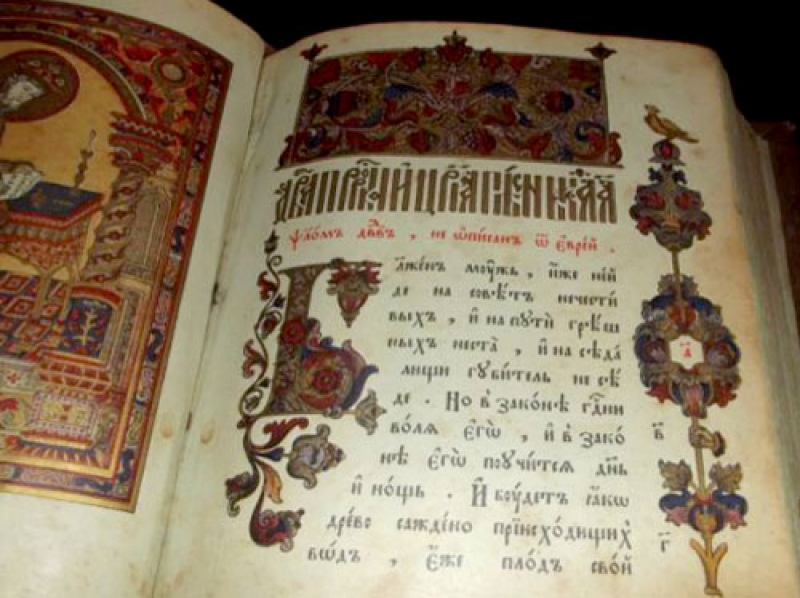 Ѱало́мъ дв҃дъ , не ѡ҆пи́санъ ѿ є҆вре́й .
Блаже́нъ моу́жь , и҆́же не и҆́
де на совѣ́тъ нечести́
выхъ , и҆ на пꙋтѝ грѣ́ш
ныхъ не ста̀ , и҆ на сѣда́
лищи гꙋби́тель не сѣ́
де . Но в зако́нѣ гдⷭ҇ни
во́лѧ є҆гѡ̀ , и҆ в зако́
нѣ є҆гѡ̀ поꙋчи́тсѧ дн҃ь
и҆ но́щь . И҆ боу́детъ ꙗ҆́кѡ
дре́во сажде́но при и҆схо́дищихъ
во́дъ , є҆́же пло́дъ сво́й
а҃
в҃
г҃